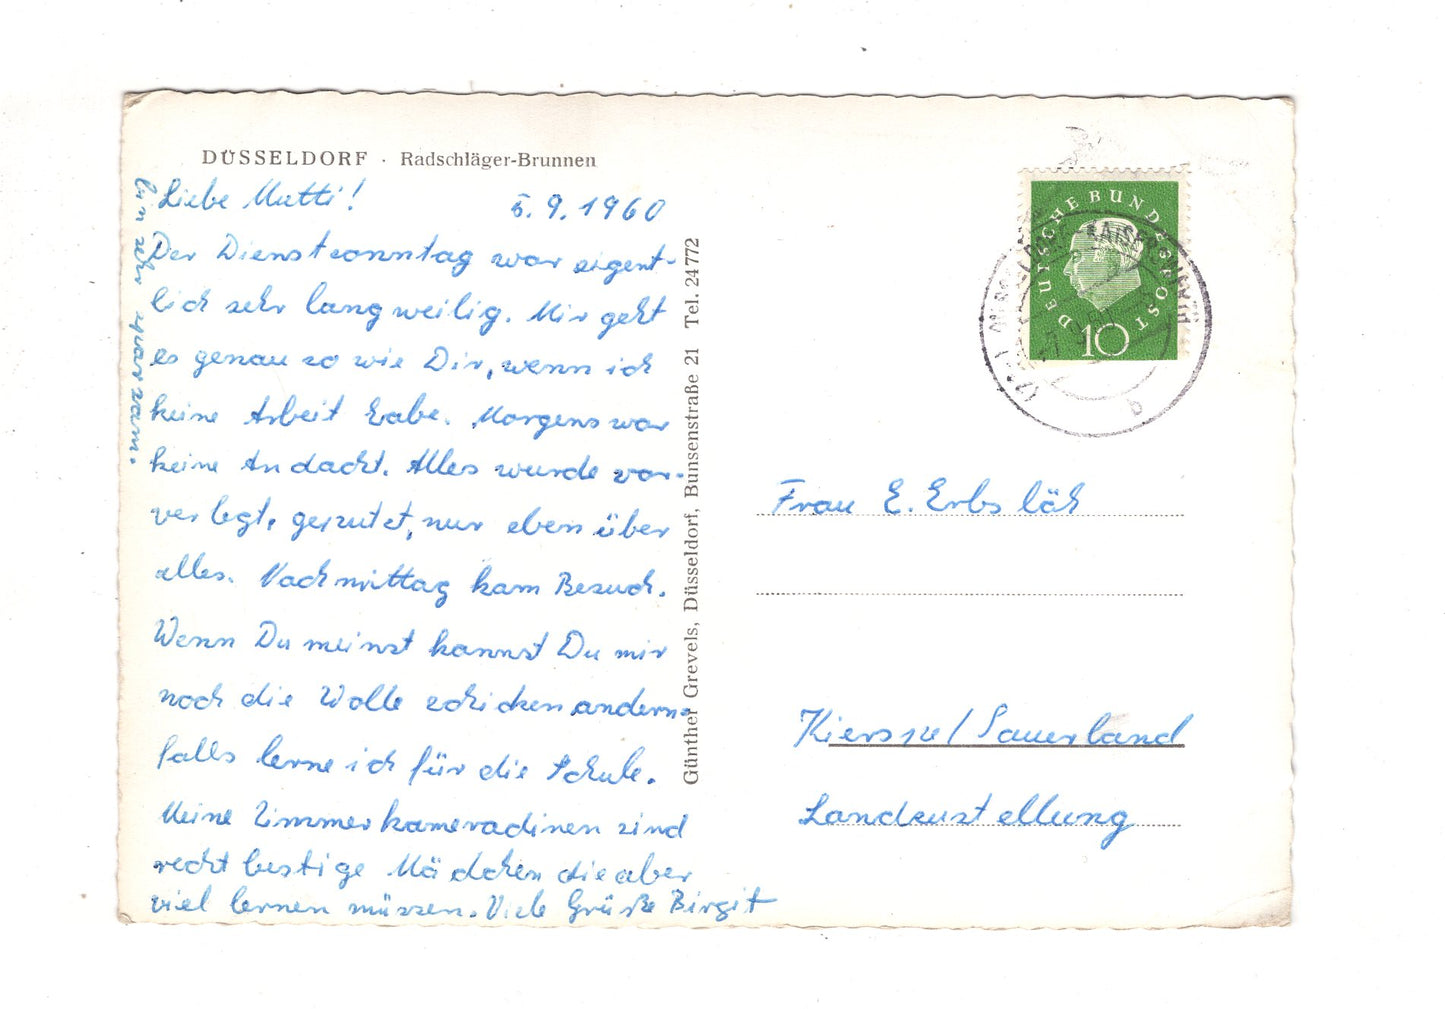 DÜSSELDORF · Radschläger-Brunnen
Liebe Mutti! 5.9.1960
Der Dienstsonntag war eigent-
lich sehr langweilig. Mir geht
es genau so wie Dir, wenn ich
keine Arbeit habe. Morgens war
keine Andacht. Alles wurde vor-
verlegt, geputzt, nur eben über
alles. Nachmittag kam Besuch.
Wenn Du meinst kannst Du mir
noch die Wolle schicken andern-
falls lerne ich für die Schule.
Meine Zimmerkameradinen sind
recht lustige Mädchen die aber
viel lernen müssen. Viele Grüße Birgit
bin sehr sparsam.
Günther Grevels, Düsseldorf, Bunsenstraße 21 Tel. 24772
DEUTSCHE BUNDESPOST
10
KAISERSWERTH
b
Frau E. Erbslöh
Sauerland